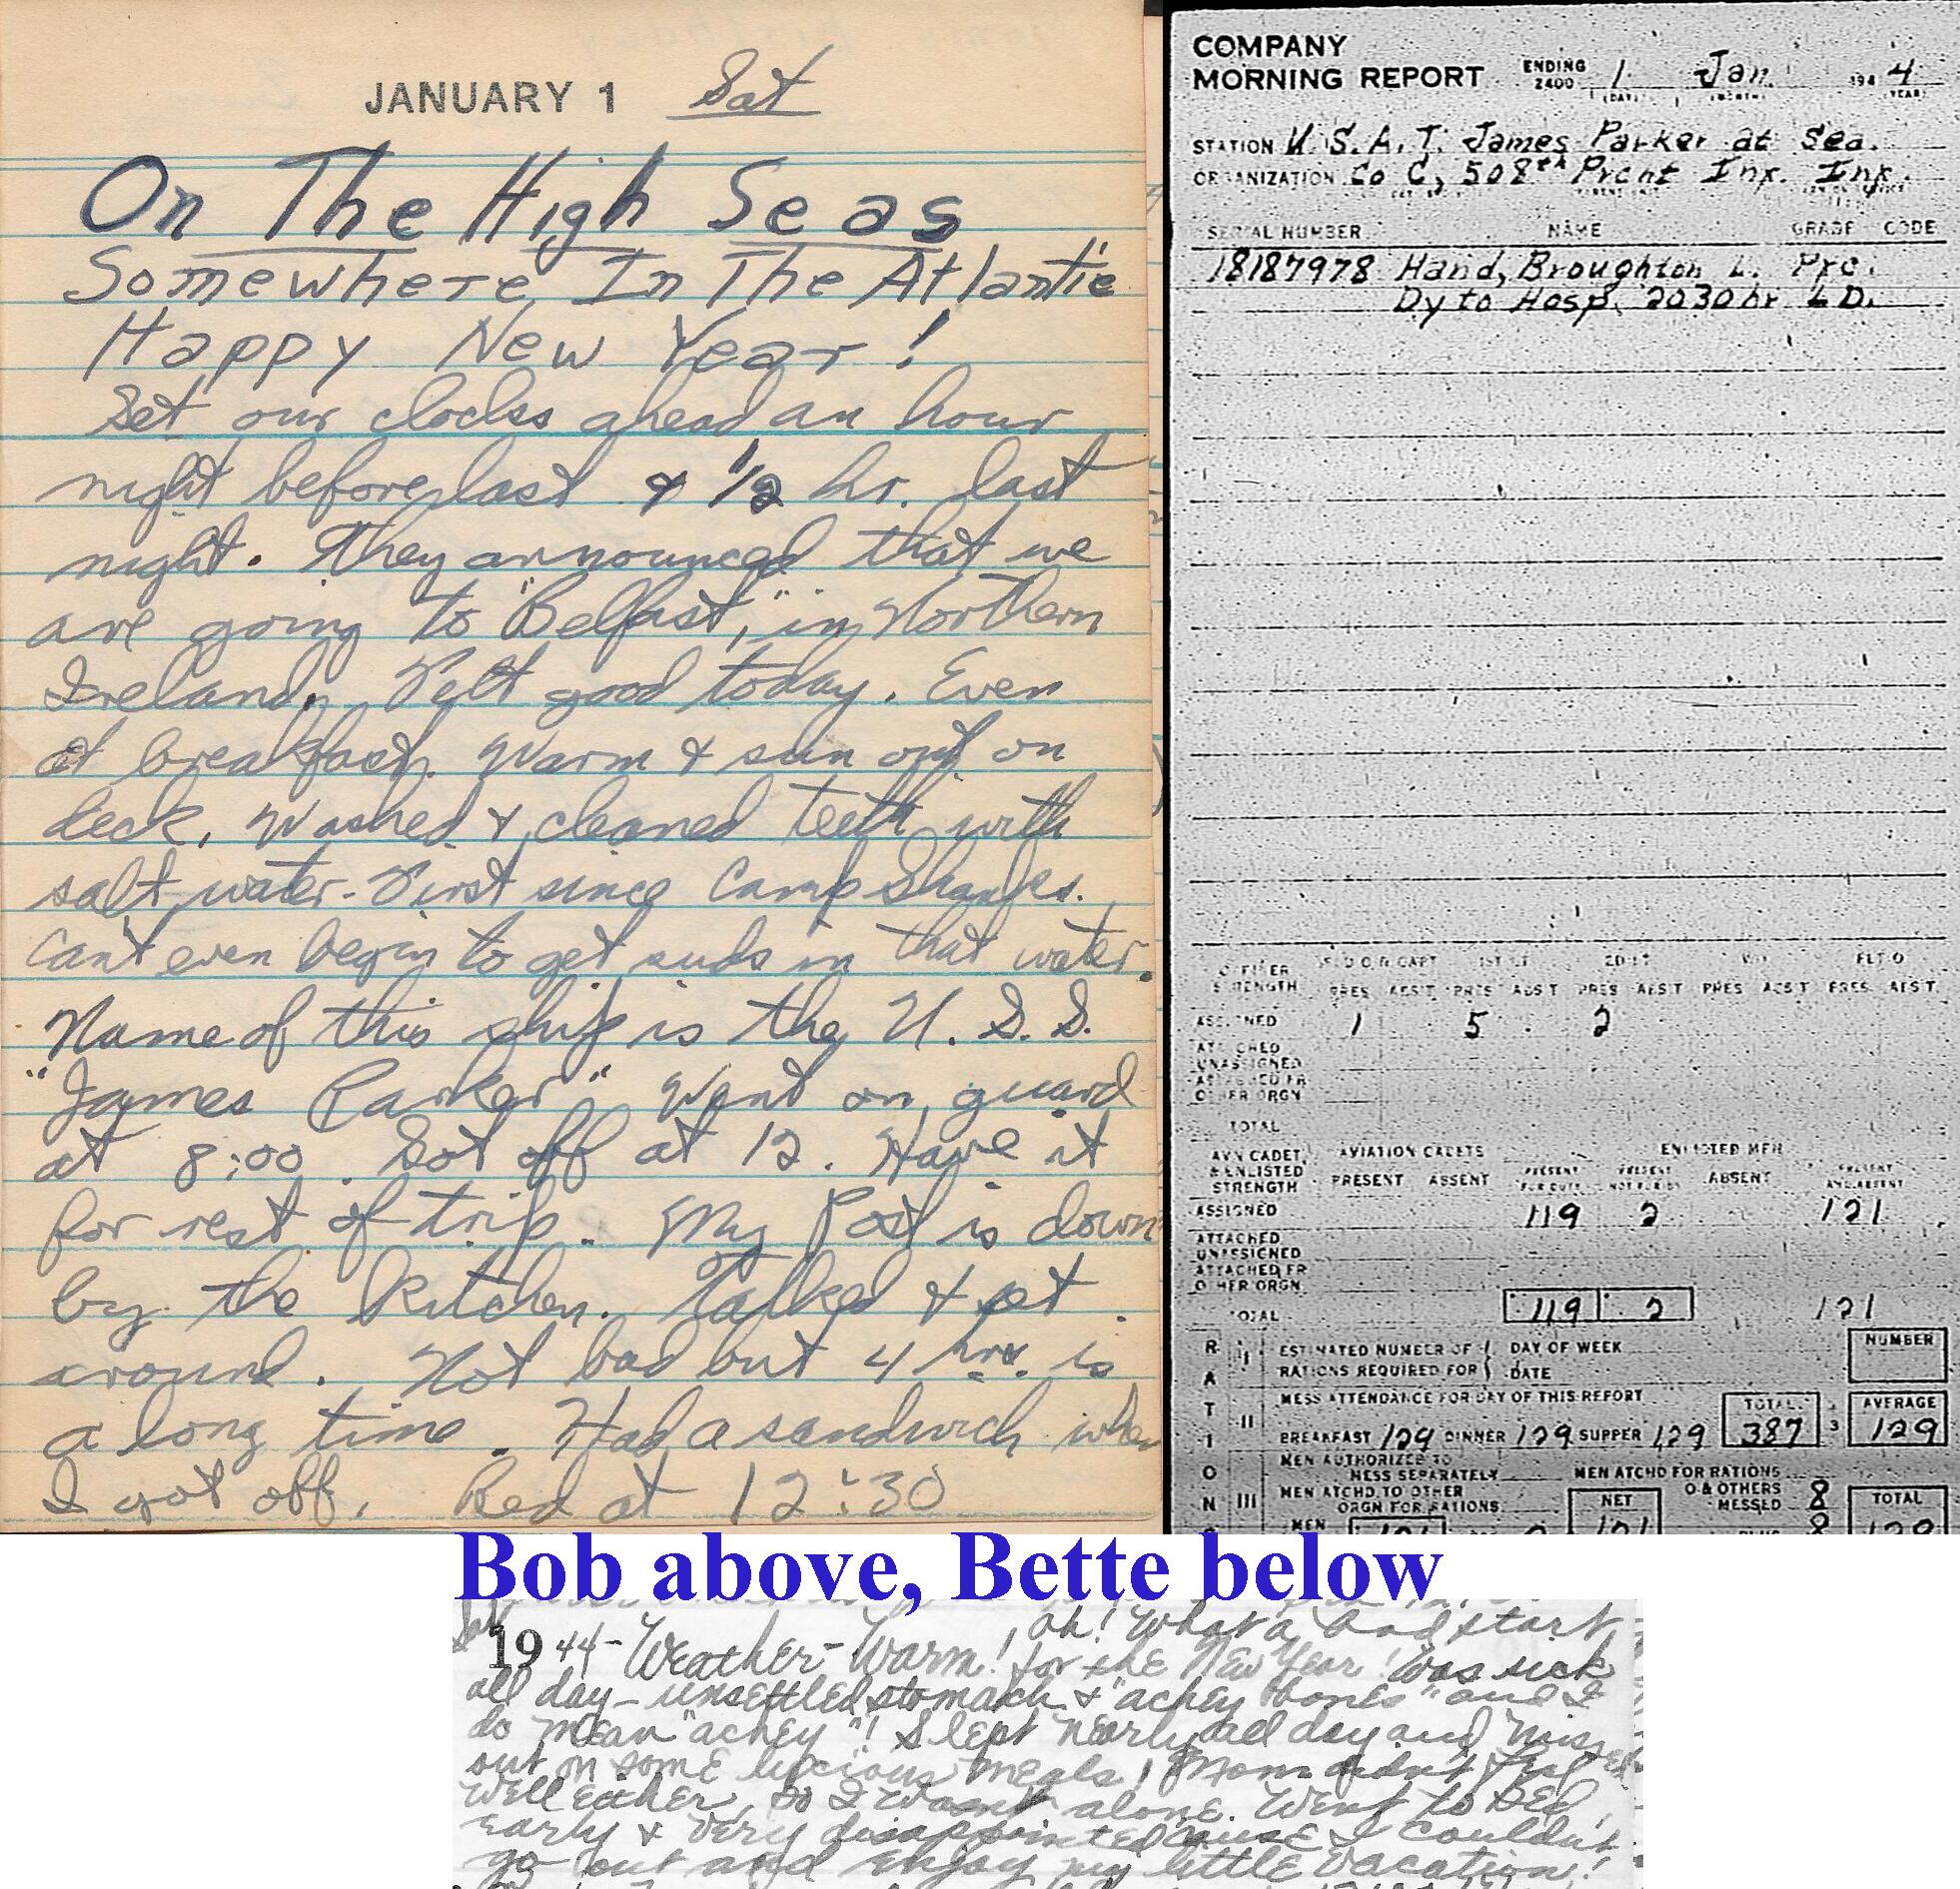 JANUARY 1 Sat
On The High Seas
Somewhere In The Atlantic
Happy New Year!
Set our clocks ahead an hour
night before last & 1/2 hr. last
night. They announced that we
are going to "Belfast," in Northern
Ireland. Felt good today. Even
at breakfast. Warm & sun out on
deck. Washed & cleaned teeth with
salt water. First since Camp Shanks.
Can't even begin to get suds in that water.
Name of this ship is the U.S.S.
"James Parker" Went on guard
at 8:00. Got off at 12. Have it
for rest of trip. My Post is down
by the kitchen. Talked & sat
around. Not bad but 4 hrs. is
a long time. Had a sandwich when
I got off. Bed at 12:30
COMPANY
MORNING REPORT ENDING 2400 1 Jan 194 4
(DAY) (MONTH) (YEAR)
STATION U.S.A.T. James Parker at Sea.
ORGANIZATION Co C, 508th Prcht Inf. Inf.
SERIAL NUMBER NAME GRADE CODE
18187978 Hand, Broughton L. Pfc.
Dy to Hosp. 2030 hr LD.
OFFICER STRENGTH 1ST LT 2D LT W O FLT O
PRES ABST PRES ABST PRES ABST PRES ABST PRES ABST
ASSIGNED 1 5 2
ATTACHED
UNASSIGNED
ATTACHED FR
OTHER ORGN
TOTAL
AVN CADET & ENLISTED STRENGTH AVIATION CADETS ENLISTED MEN
PRESENT ABSENT PRESENT FOR DUTY PRESENT NOT FOR DUTY ABSENT PRESENT AND ABSENT
ASSIGNED 119 2 121
ATTACHED
UNASSIGNED
ATTACHED FR
OTHER ORGN
TOTAL 119 2 121
RATION
I ESTIMATED NUMBER OF RATIONS REQUIRED FOR DAY OF WEEK DATE NUMBER
II MESS ATTENDANCE FOR DAY OF THIS REPORT TOTAL AVERAGE
BREAKFAST 129 DINNER 129 SUPPER 129 387 3 129
III MEN AUTHORIZED TO MESS SEPARATELY MEN ATCHD FOR RATIONS
MEN ATCHD TO OTHER ORGN FOR RATIONS NET O & OTHERS MESSED 8 TOTAL
MEN 121 121 8 129
Bob above, Bette below
Sat
1944 - Weather - Warm! Oh! What a bad start
for the New Year! Was sick
all day - unsettled stomach & "achey bones" and I
do mean "achey"! Slept nearly all day and missed
out on some luscious meals! Mom didn't feel
well either, so I wasn't alone. Went to bed
early & very disappointed cause I couldn't
go out and enjoy my little vacation!